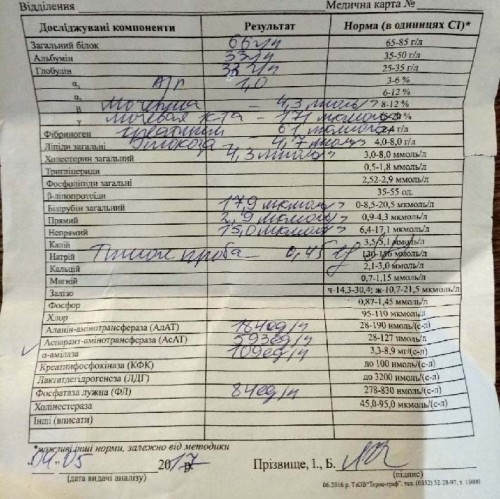 Відділення Медична карта №
Досліджувані компоненти Результат Норма (в одиницях СІ)*
Загальний білок 66 г/л 65-85 г/л
Альбумін 33 г/л 35-50 г/л
Глобулін г/л 25-35 г/л
α₁ А/г 1,0 3-6 %
α₂ 6-12 %
β Мочевина - 4,3 ммоль 8-12 %
γ мочевая к-та - 171 мкмоль
Фібриноген креатинин - 61 мкмоль г/л
Ліпіди загальні глюкоза - 4,7 ммоль 4,0-8,0 г/л
Холестерин загальний 4,3 ммоль 3,0-8,0 ммоль/л
Тригліцериди 0,5-1,8 ммоль/л
Фосфоліпіди загальні 2,52-2,9 ммоль/л
β-ліпопротеїди 35-55 од.
Білірубін загальний 17,9 мкмоль 0-8,5-20,5 мкмоль/л
Прямий 2,9 мкмоль 0,9-4,3 мкмоль/л
Непрямий 15,0 мкмоль 6,4-17,1 мкмоль/л
Калій 3,5-5,1 ммоль/л
Натрій проба - 0,45 130-156 ммоль/л
Кальцій 2,1-3,0 ммоль/л
Магній 0,7-1,15 ммоль/л
Залізо ч-14,3-30,4; ж-10,7-21,5 мкмоль/л
Фосфор 0,87-1,45 ммоль/л
Хлор 95-110 ммоль/л
Аланін-амінотрансфераза (АлАТ) 184 ед/л 28-190 нмоль/(с-л)
Аспарат-амінотрансфераза (АсАТ) ед/л 28-127 нмоль/л
α-амілаза 109 ед/л 3,3-8,9 мг/(с-л)
Креатинфосфокіназа (КФК) до 100 нмоль/(с-л)
Лактатдегідрогеназа (ЛДГ) до 3200 нмоль/(с-л)
Фосфатаза лужна (ФЛ) 84 ед/л 278-830 нмоль/(с-л)
Холінестераза 45,0-95,0 мкмоль/(с-л)
Інші (вписати)
*можливі інші норми, залежно від методики
04 05 2017 р. Прізвище, І., Б.
(дата видачі аналізу) (підпис)
06.2016 р. ТзОВ "Терно-граф". тел. (0352) 52-28-97, т. 15000